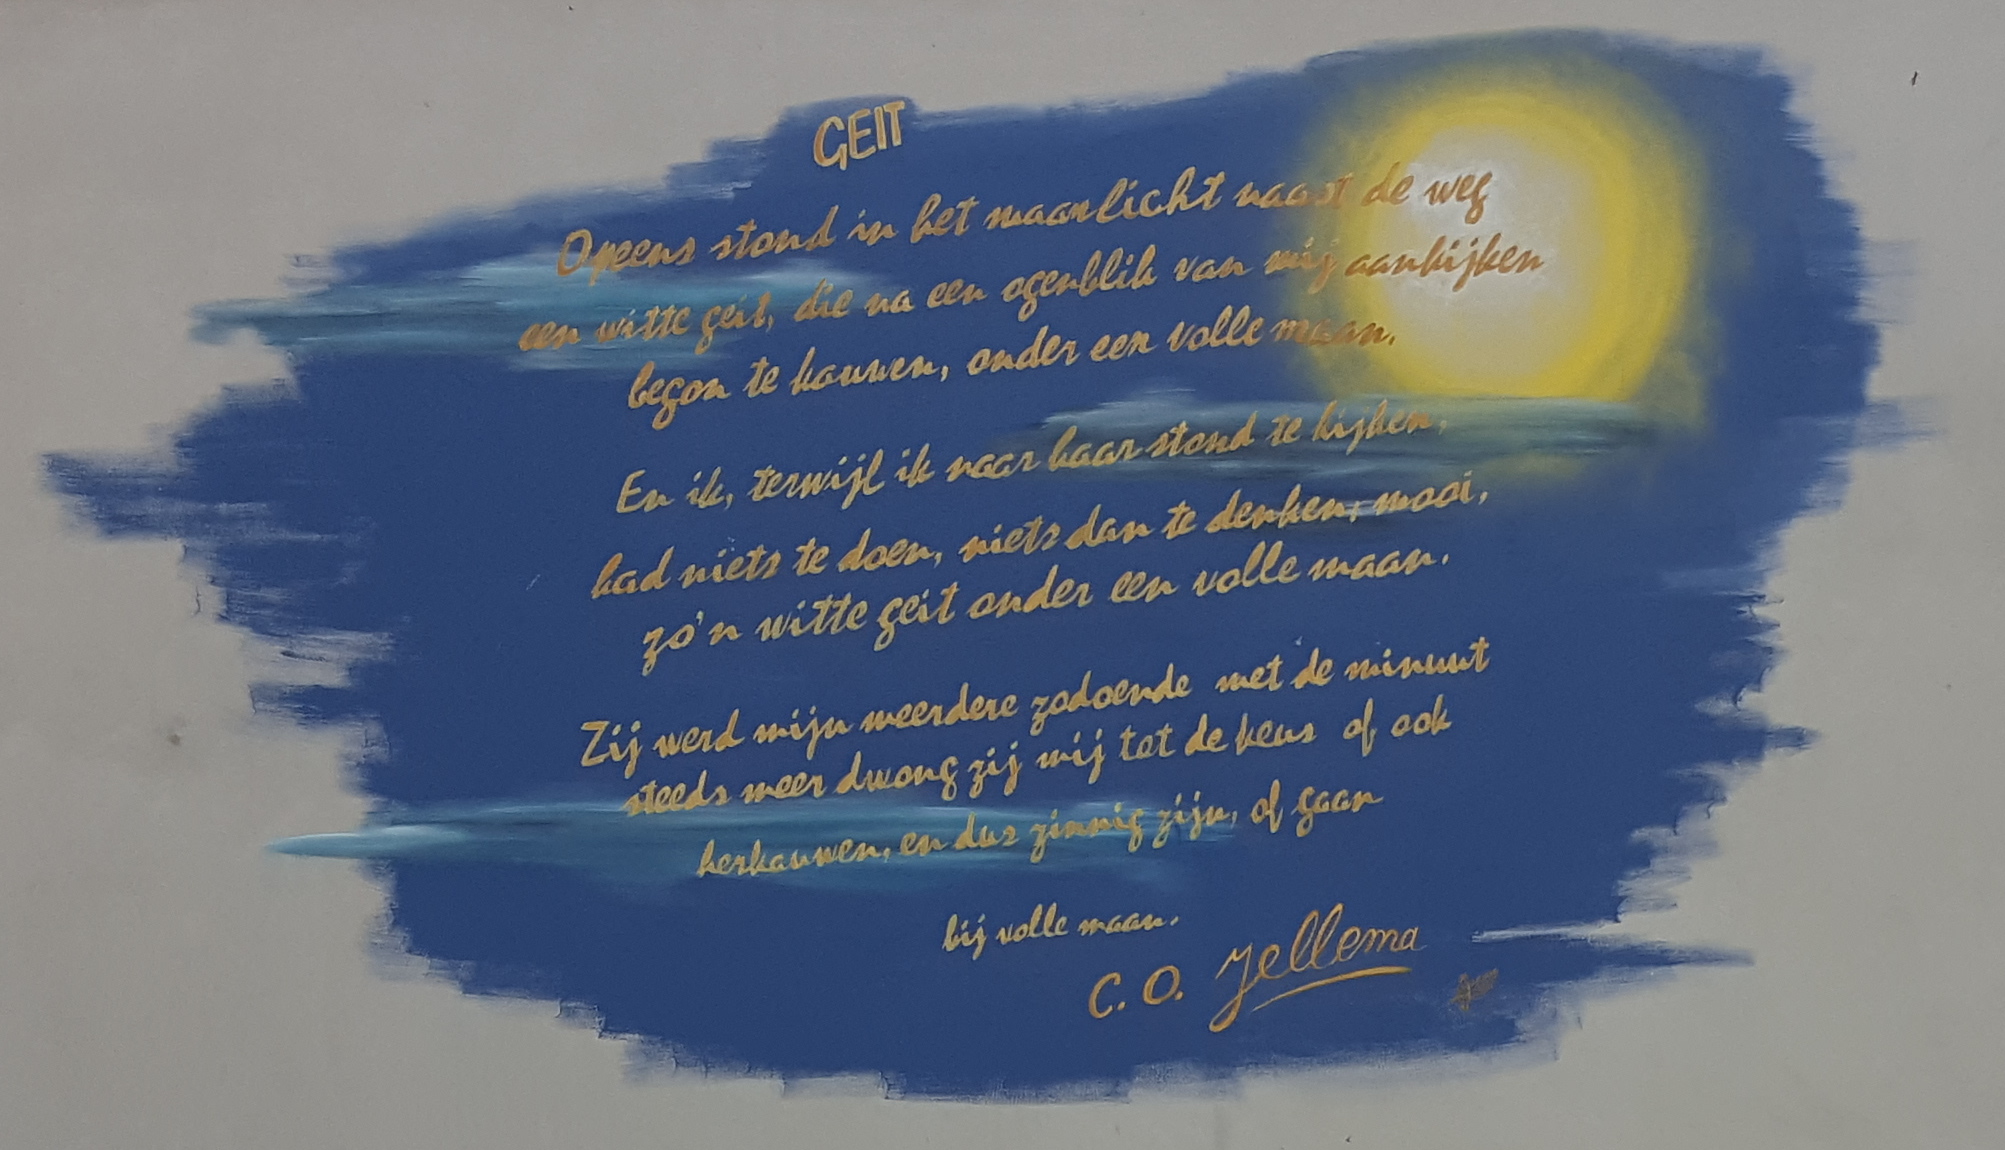 GEIT
Opeens stond in het maanlicht naast de weg
een witte geit, die na een ogenblik van mij aankijken
begon te kauwen, onder een volle maan.
En ik, terwijl ik naar haar stond te kijken,
had niets te doen, niets dan te denken; mooi,
zo'n witte geit onder een volle maan.
Zij werd mijn meerdere zodoende met de minuut
steeds meer dwong zij mij tot de keus of ook
herkauwen, en dus zinnig zijn, of gaan
bij volle maan.
C. O. Jellema